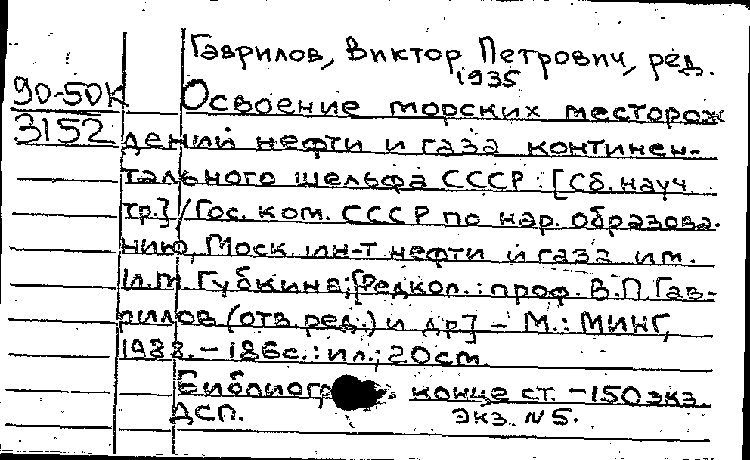 Гаврилов, Виктор Петрович, ред.
1935
90-50К
3152
Освоение морских месторож
дений нефти и газа континен-
тального шельфа СССР : [Сб. науч
тр.] / Гос. ком. СССР по нар. образова-
нию, Моск ин-т нефти и газа им.
И.М. Губкина; [Редкол. : проф. В.П. Гав-
рилов (отв. ред.) и др] - М.: МИНГ,
1988. - 186с. : ил.; 20см.
Библиогр конце ст. - 150 экз.
ДСП. экз. N 5.